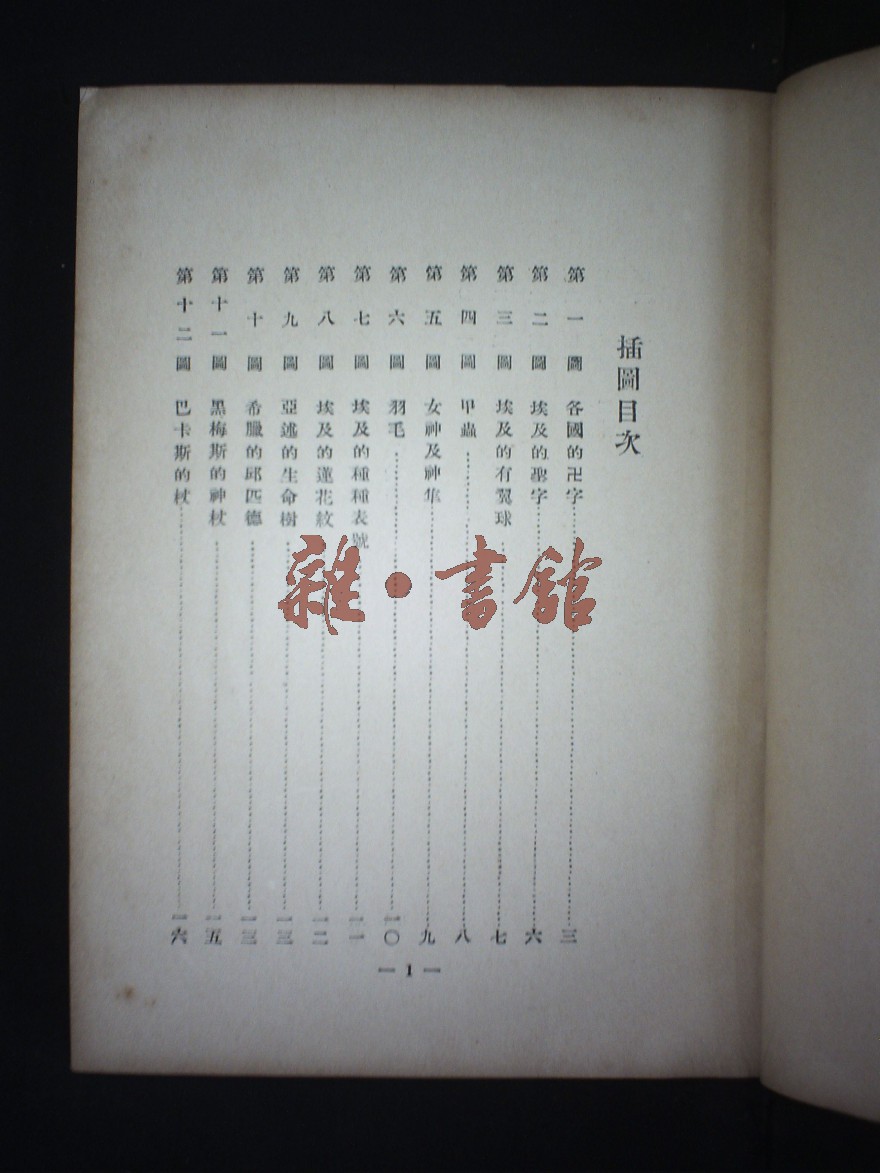 插圖目次
第一圖 各國的卍字…………三
第二圖 埃及的聖字…………六
第三圖 埃及的有翼球…………七
第四圖 甲蟲…………八
第五圖 女神及神隼…………九
第六圖 羽毛…………一〇
第七圖 埃及的種種表號…………一一
第八圖 埃及的蓮花紋…………一二
第九圖 亞述的生命樹…………一三
第十圖 希臘的邱匹德…………一三
第十一圖 黑梅斯的神杖…………一五
第十二圖 巴卡斯的杖…………一六
— 1 —
雜·書館